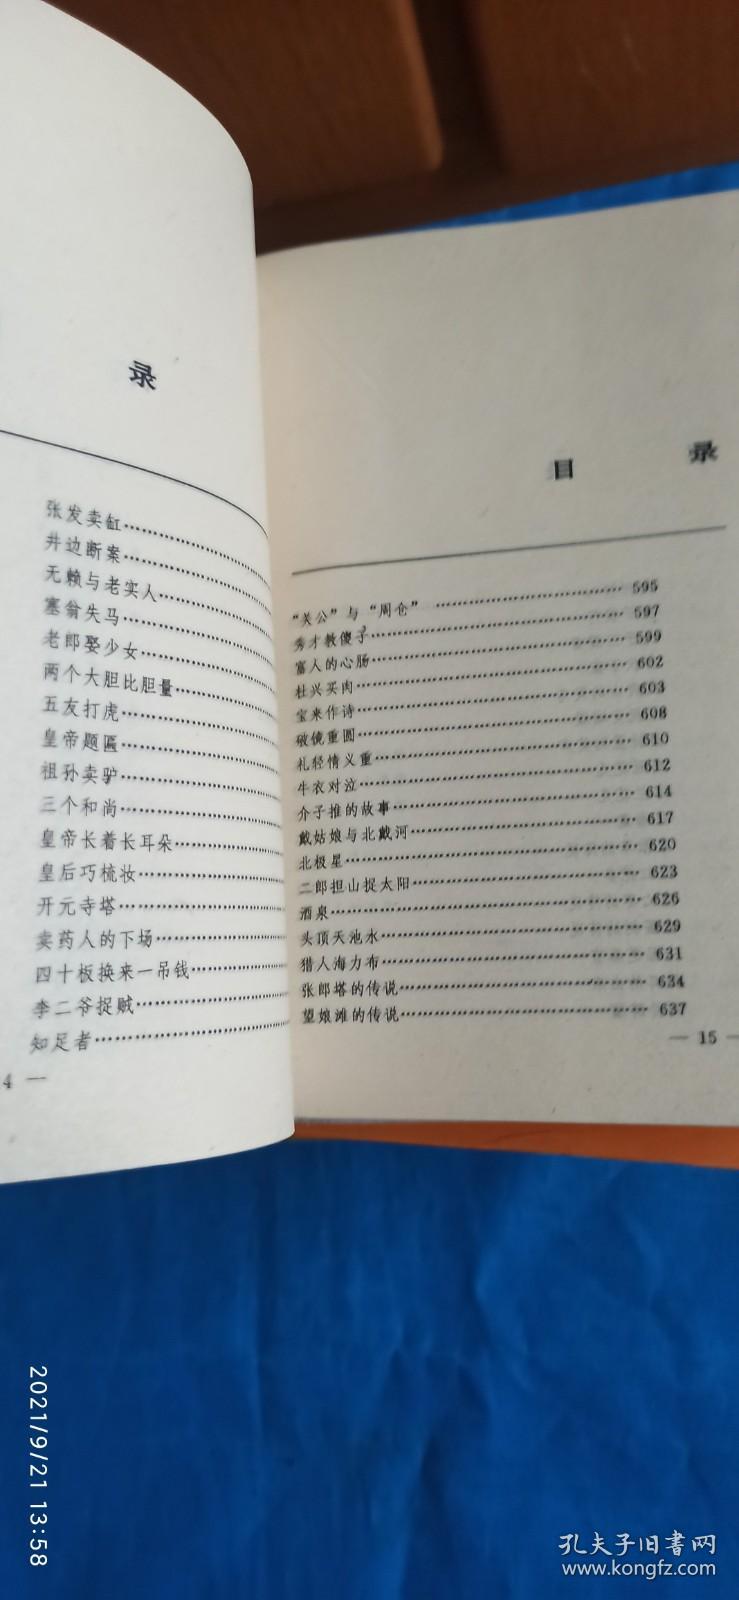 录
张发卖缸
井边断案
无赖与老实人
塞翁失马
老郎娶少女
两个大胆比胆量
五友打虎
皇帝题匾
祖孙卖驴
三个和尚
皇帝长着长耳朵
皇后巧梳妆
开元寺塔
卖药人的下场
四十板换来一吊钱
李二爷捉贼
知足者
4 —
目 录
“关公”与“周仓” 595
秀才教傻子 597
富人的心肠 599
杜兴买肉 602
宝来作诗 603
破镜重圆 608
礼轻情义重 610
牛衣对泣 612
介子推的故事 614
戴姑娘与北戴河 617
北极星 620
二郎担山捉太阳 623
酒泉 626
头顶天池水 629
猎人海力布 631
张郎塔的传说 634
望娘滩的传说 637
— 15 —
2021/9/21 13:58
孔夫子旧書网
www.kongfz.com